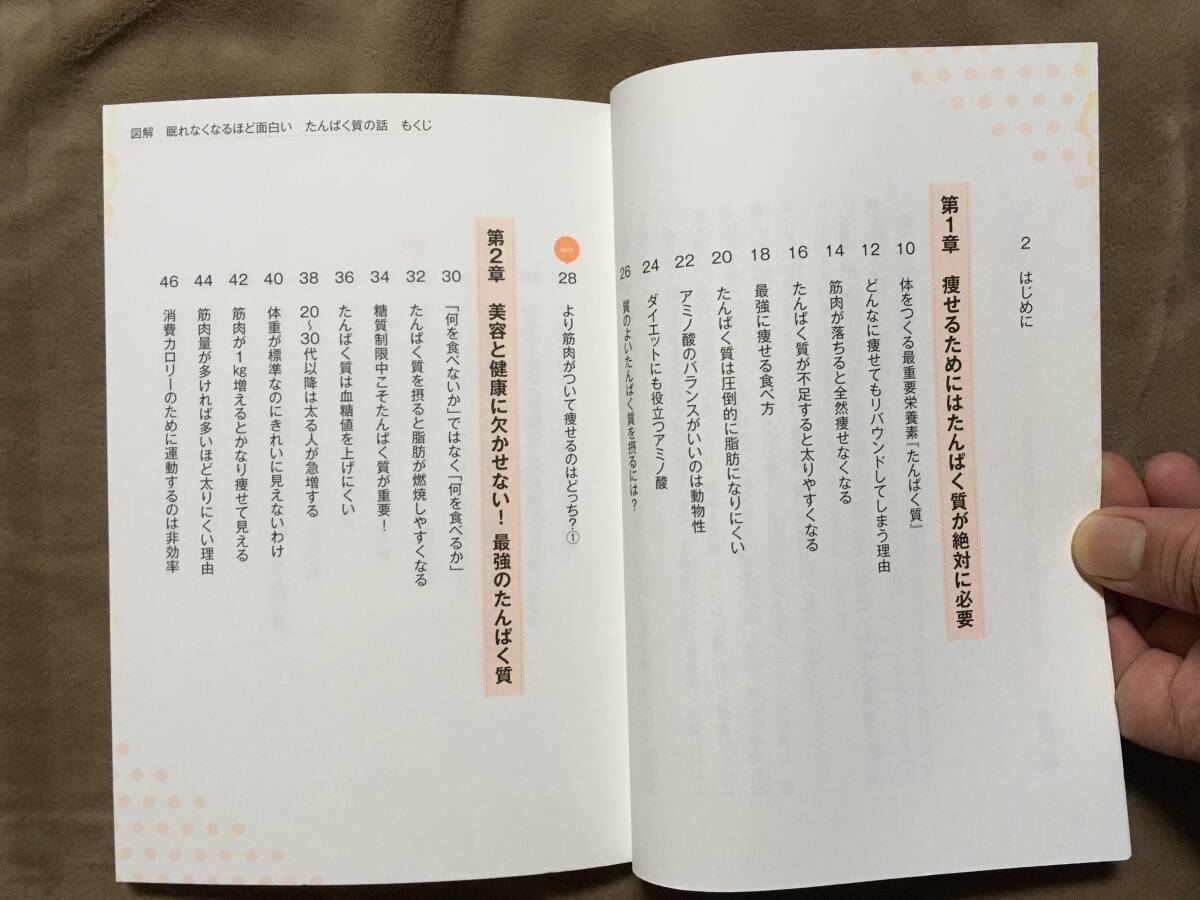 図解　眠れなくなるほど面白い　たんぱく質の話　もくじ
2　はじめに
第1章　痩せるためにはたんぱく質が絶対に必要
10　体をつくる最重要栄養素『たんぱく質』
12　どんなに痩せてもリバウンドしてしまう理由
14　筋肉が落ちると全然痩せなくなる
16　たんぱく質が不足すると太りやすくなる
18　最強に痩せる食べ方
20　たんぱく質は圧倒的に脂肪になりにくい
22　アミノ酸のバランスがいいのは動物性
24　ダイエットにも役立つアミノ酸
26　質のよいたんぱく質を摂るには？
28　より筋肉がついて痩せるのはどっち？①
第2章　美容と健康に欠かせない！ 最強のたんぱく質
30　「何を食べないか」ではなく「何を食べるか」
32　たんぱく質を摂ると脂肪が燃焼しやすくなる
34　糖質制限中こそたんぱく質が重要！
36　たんぱく質は血糖値を上げにくい
38　20〜30代以降は太る人が急増する
40　体重が標準なのにきれいに見えないわけ
42　筋肉が1kg増えるとかなり痩せて見える
44　筋肉量が多ければ多いほど太りにくい理由
46　消費カロリーのために運動するのは非効率